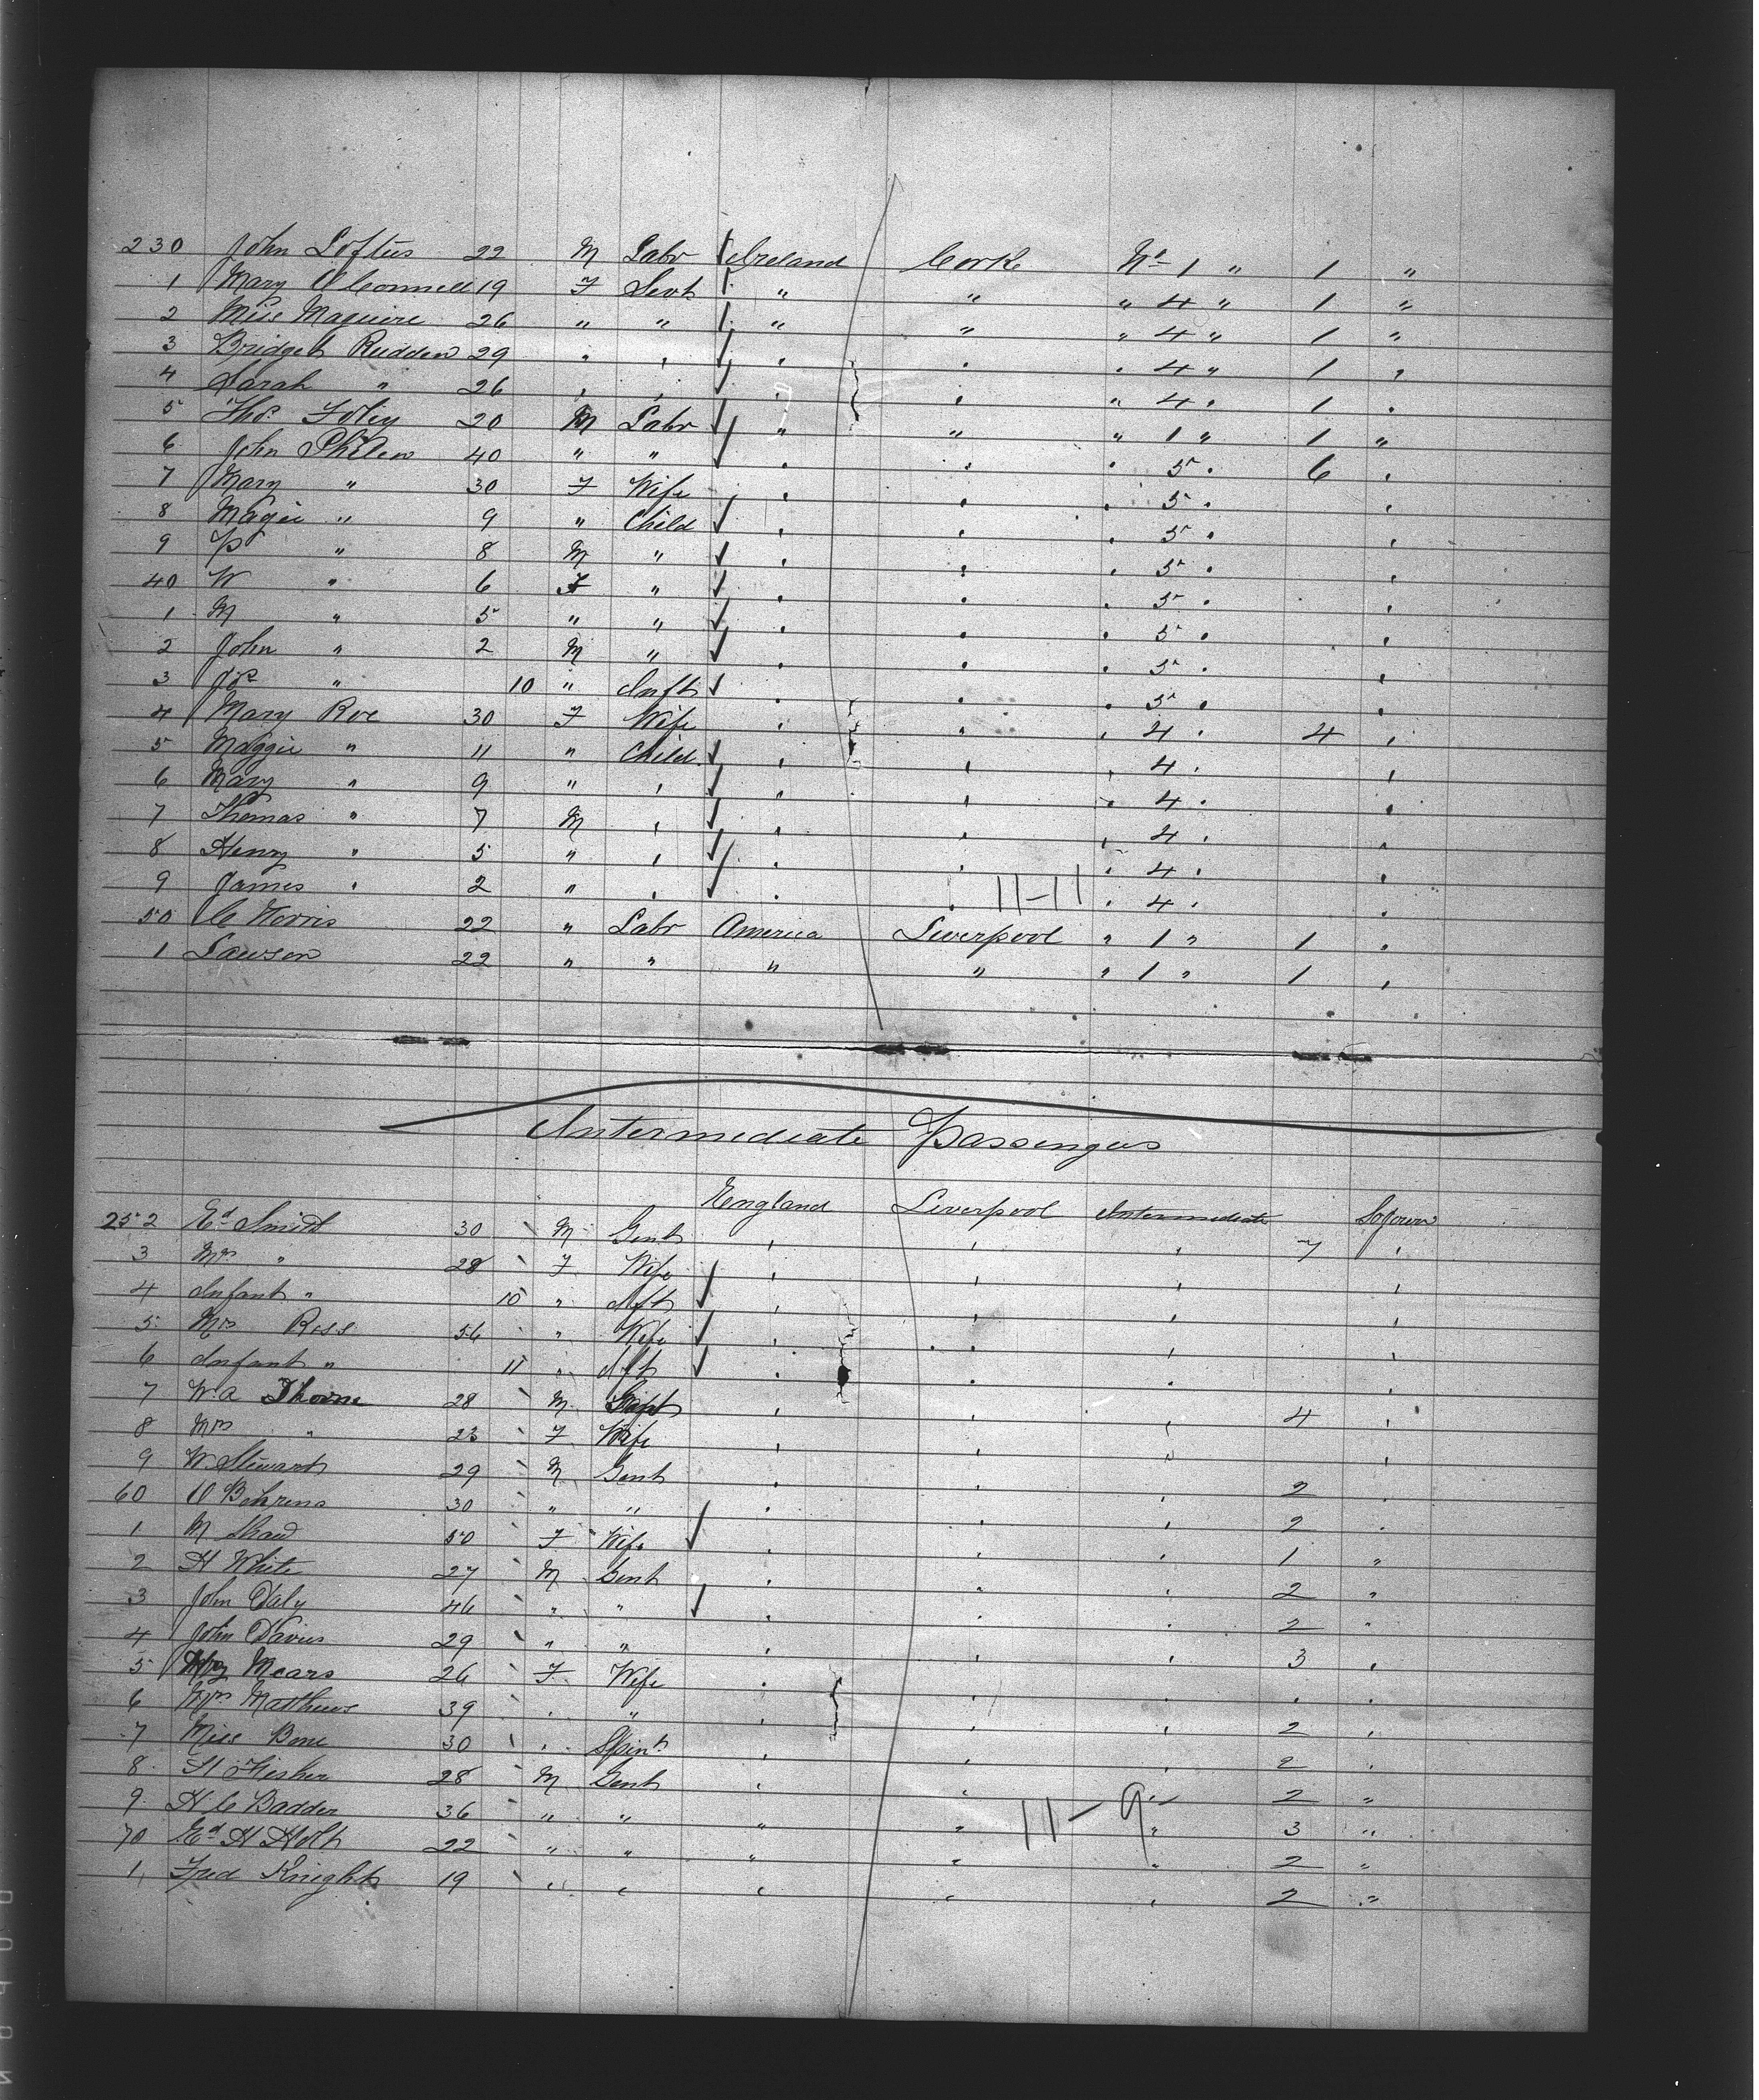 230 John Loftus 22 M Labr Ireland Corke No 1 " 1 "
1 Mary O Connell 19 F Sevt " " " 4 " 1 "
2 Miss Maguire 26 " " " " " 4 " 1 "
3 Bridget Rudden 29 " " " " " 4 " 1 "
4 Sarah " 26 " " " " " 4 " 1 "
5 Thos Foley 20 M Labr " " " 1 " 1 "
6 John Philen 40 " " " " " 5 " 6 "
7 Mary " 30 F Wife " " " 5 " "
8 Magie " 9 " Child " " " 5 " "
9 P " 8 M " " " " 5 " "
40 W " 6 F " " " " 5 " "
1 M " 5 " " " " " 5 " "
2 John " 2 M " " " " 5 " "
3 Jos " 10 " Inft " " " 5 " "
4 Mary Roe 30 F Wife " " " 4 " 4 "
5 Maggie " 11 " Child " " " 4 " "
6 Mary " 9 " " " " " 4 " "
7 Thomas " 7 M " " " " 4 " "
8 Henry " 5 " " " " " 4 " "
9 James " 2 " " " " " 4 " "
11-11
50 C Norris 22 " Labr America Liverpool " 1 " 1 "
1 Lawson 22 " " " " " 1 " 1 "
Intermediate Passengers
England Liverpool Intermediate Sojourn
252 Ed Smith 30 M Gent " " " 7 "
3 Mrs " 28 F Wife " " " "
4 Infant " 10 " Ift " " " "
5 Mrs Ross 56 " Wife " " " "
6 Infant " 11 " Ift " " "
7 W.A Thorne 28 M " " " 4 "
8 Mrs " 23 F Wife " " " "
9 W Stewart 29 M Gent " " 2 "
60 O Behrens 30 " " " " " 2 "
1 M Shaw 50 F Wife " " " 1 "
2 H White 27 M Gent " " " 2 "
3 John Daly 46 " " " " " 2 "
4 John Davies 29 " " " " " 3 "
5 Mears 26 F Wife " " " " "
6 Mrs Matthews 39 " " " " " 2 "
7 Miss Bone 30 " Spint " " " 2 "
8 H Fisher 28 M Gent " " " 2 "
9 H C Badder 36 " " " " " 3 "
11-9
70 Ed H Holt 22 " " " " " 2 "
1 Fred Knight 19 " " " " " 2 "